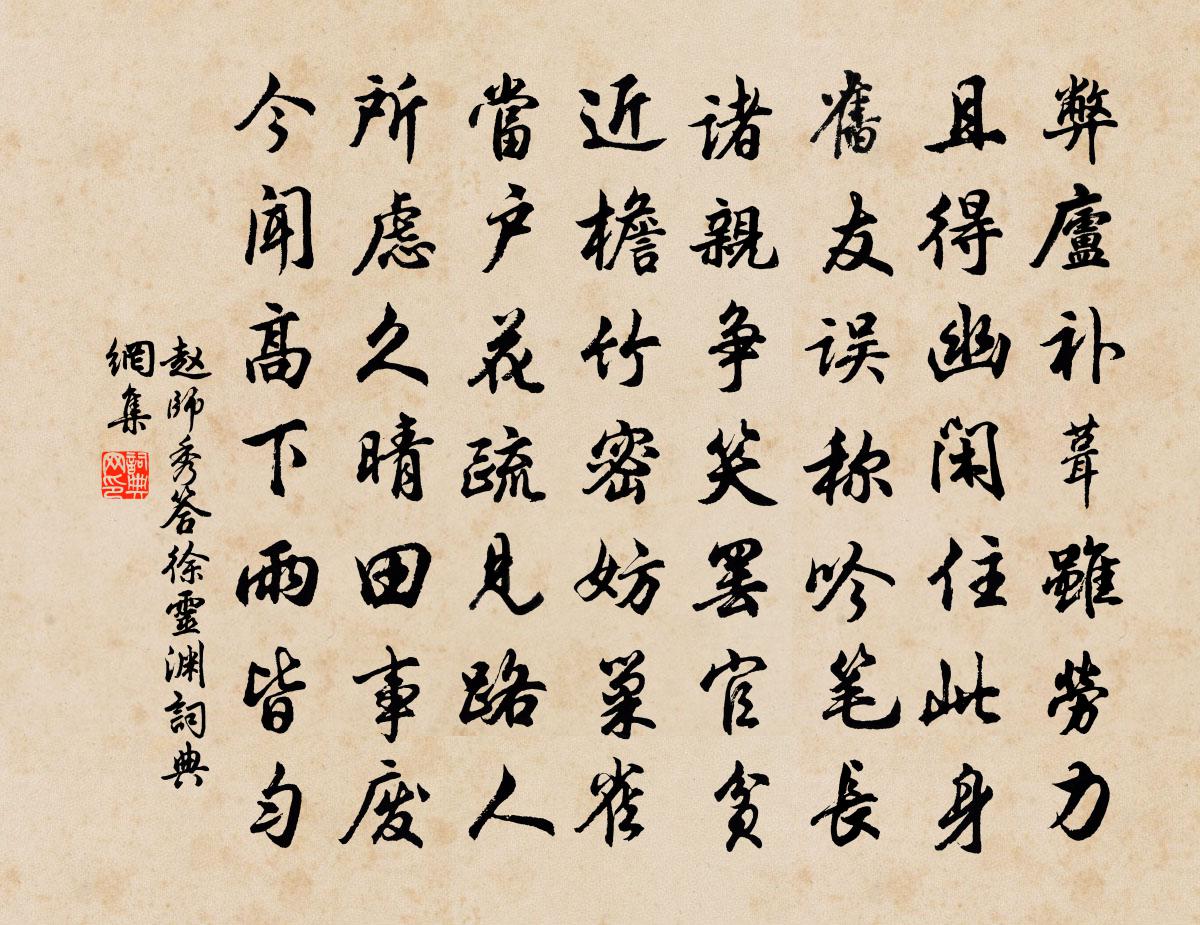 弊廬补葺雖勞力
且得幽闲住此身
舊友误称吟笔長
诸親争笑罢官貧
近檐竹密妨巢雀
當户花疏見路人
所虑久晴田事废
今闻高下雨皆匀
赵師秀答徐靈渊詞典
網集
詞典网印